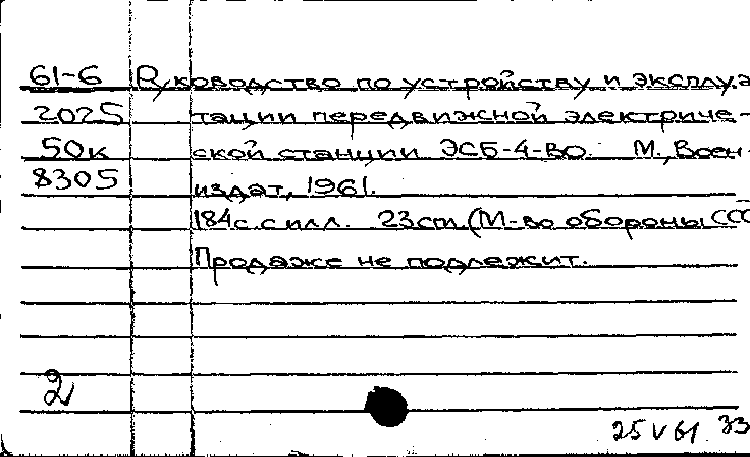 61-6 Руководство по устройству и эксплуа
2025 тации передвижной электриче-
50к ской станции ЭСБ-4-ВО. М., Воен-
8305 издат, 1961.
184с. с илл. 23см. (М-во обороны ССС
Продаже не подлежит.
2
25 V 61 33